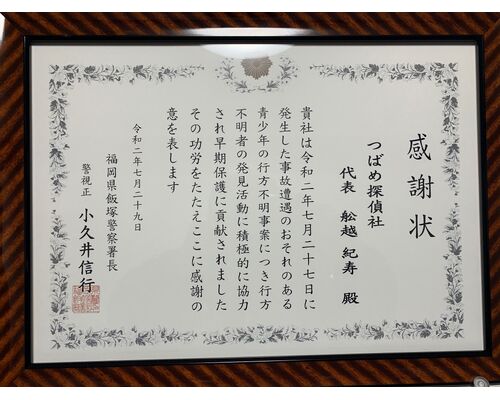 感謝状
つばめ探偵社
代表 舩越 紀寿 殿
貴社は令和二年七月二十七日に
発生した事故遭遇のおそれのある
青少年の行方不明事案につき行方
不明者の発見活動に積極的に協力
され早期保護に貢献されました
その功労をたたえここに感謝の
意を表します
令和二年七月二十九日
福岡県飯塚警察署長
警視正 小久井信行